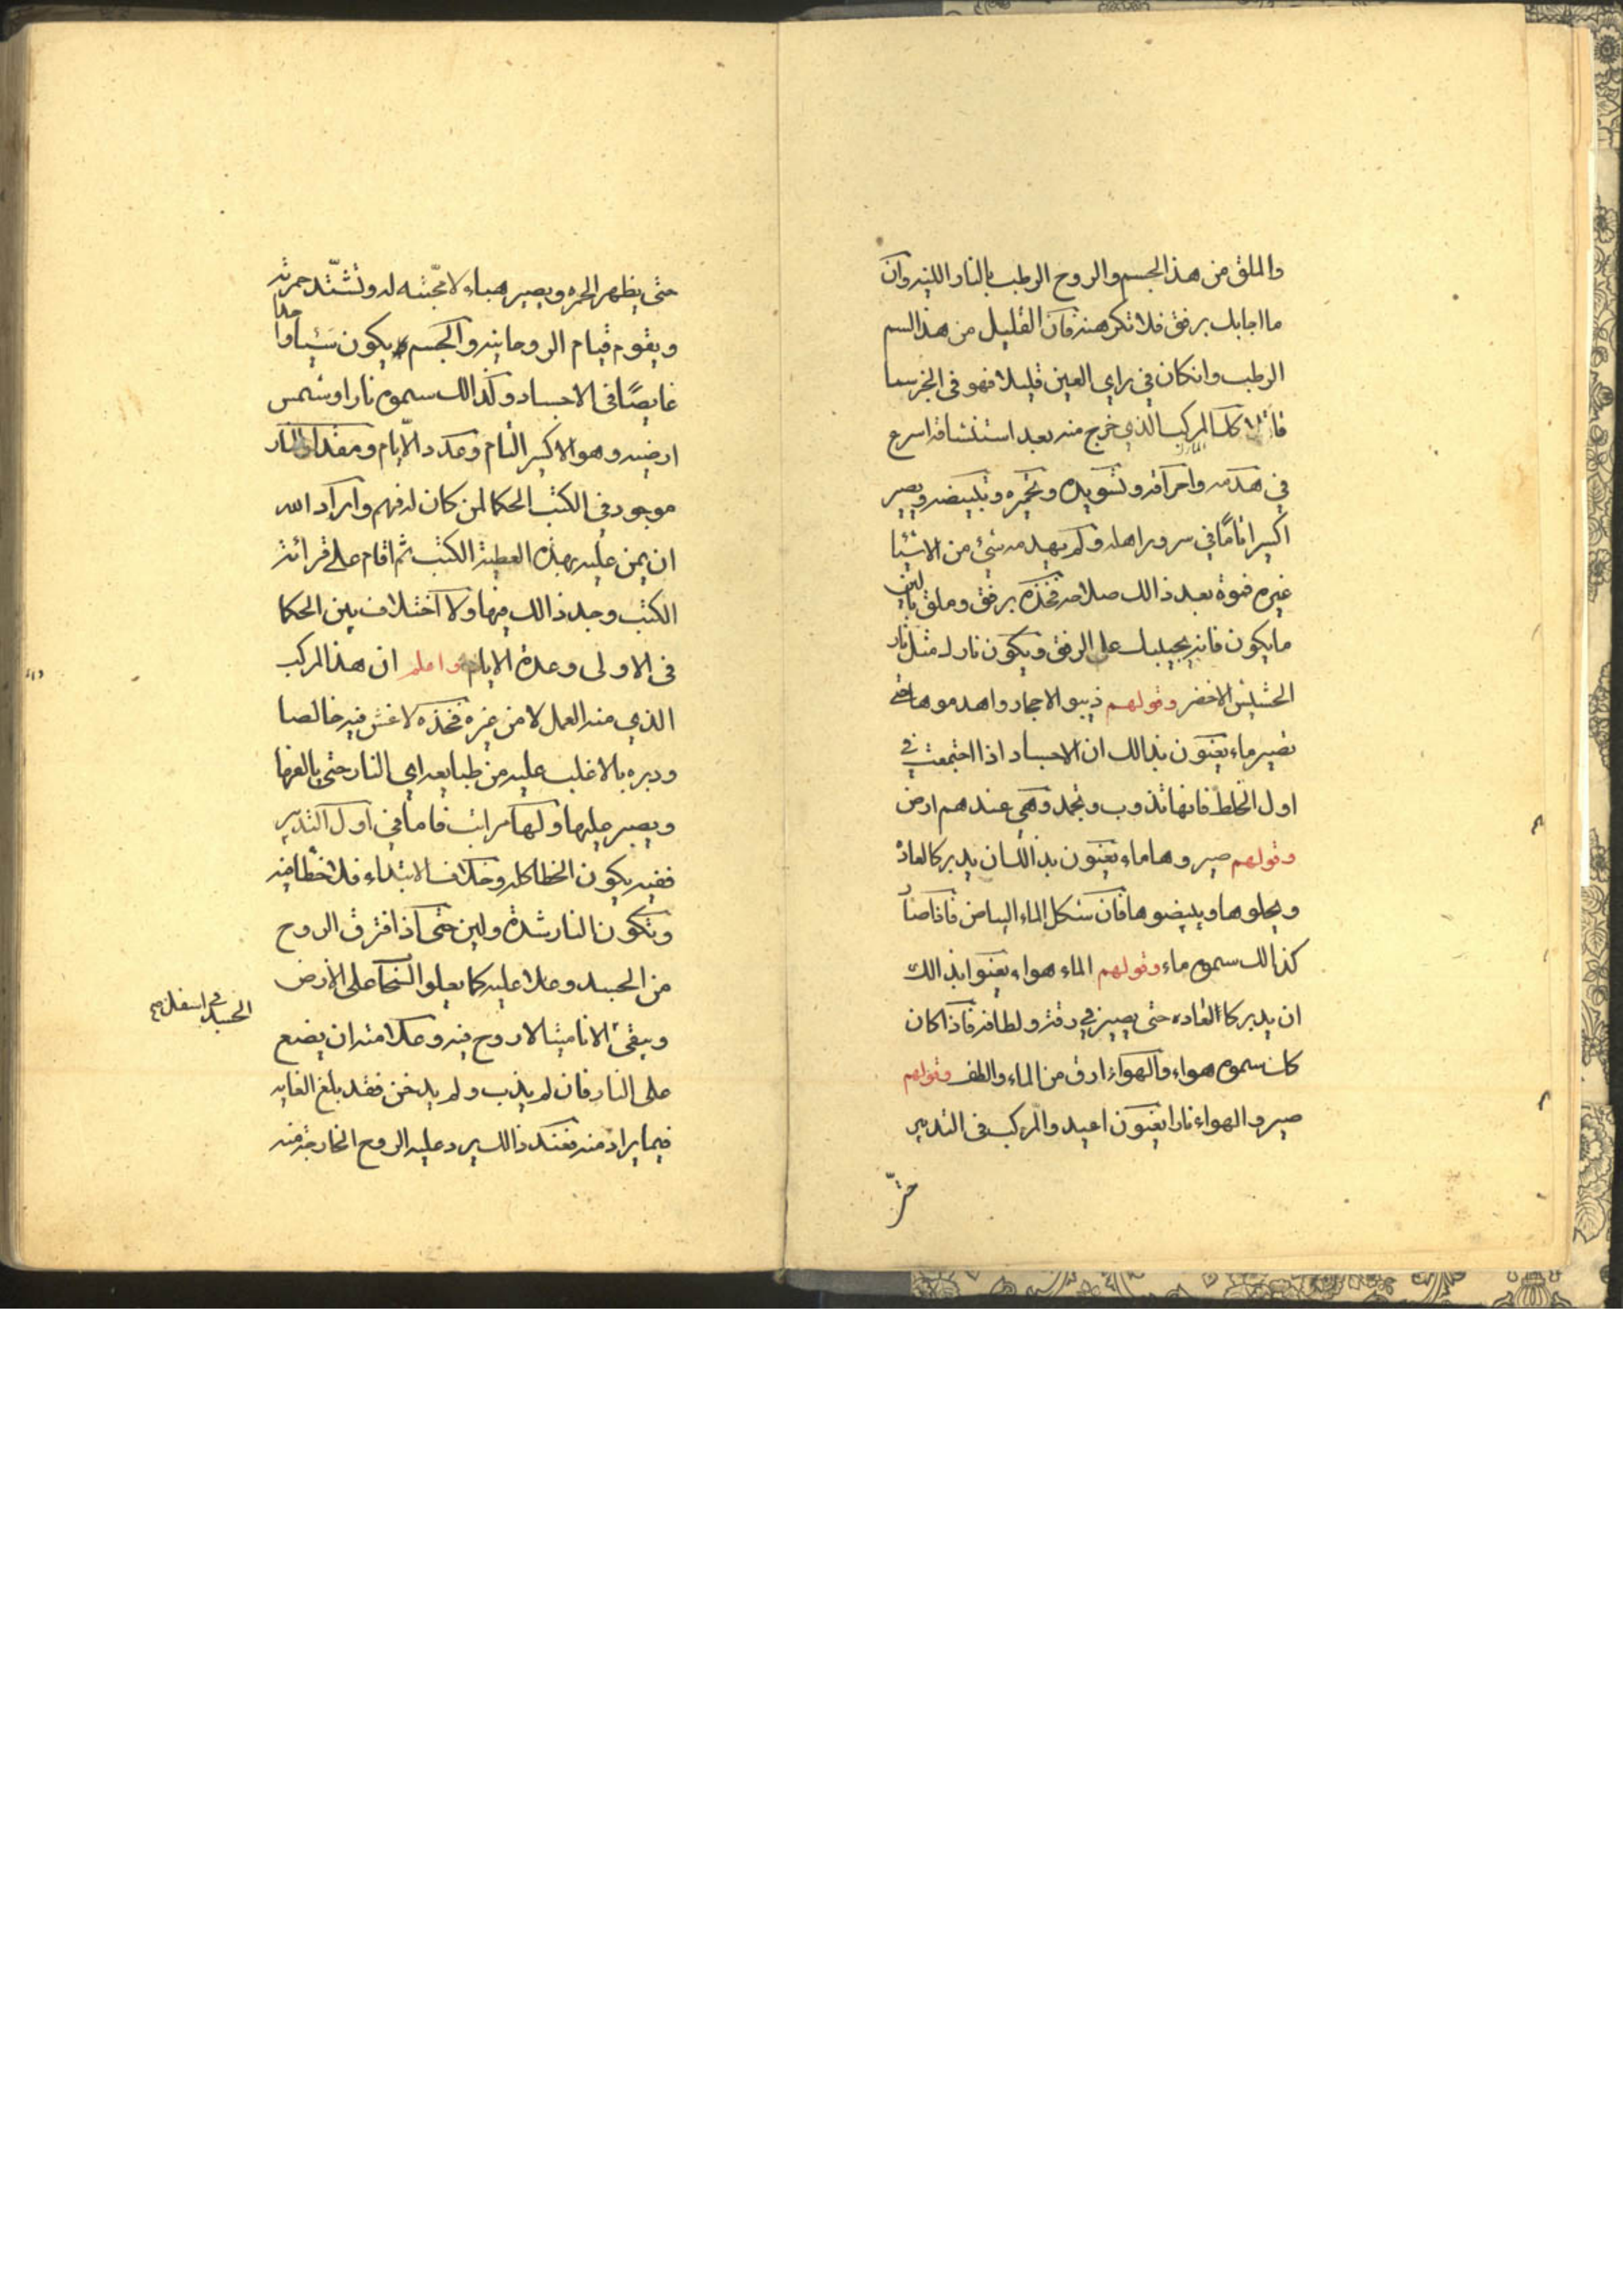 والملق من هذا الجسم والروح الرطب بالنار اللينه وان
ما اجابك برفق فلا تكرهنه فان القليل من هذا السم
الرطب وانكان في راي العين قليلا فهو فى الجز سما
كل المركب الذي خرج منه بعد استنشاقه اسرع
في هدمه واحراقه وتسويده وتحميره وتبييضه ويصير
اكسيرا تاما في سرور اهله ولم يهدمه شئ من الاشيا
غيره فنوة بعد ذالك صلاحه فخذه برفق وملق بالين
ما يكون فانه يجيبك على الرفق ويكون ناره مثل نار
الحشيش الاخضر وقولهم ذيبو الاجار واهدموها حتى
تصير ماء يعنون بذالك ان الاجساد اذا اجتمعت في
اول الخلط فانها تذوب وتجمد وهي عندهم ارض
وقولهم صيروها ماء يعنون بذالك ان يدبر كالعادة
ويحلوها ويبيضوها فان شكل الماء البياض فاذا صار
كذالك سموه ماء وقولهم الماء هواء يعنوا بذالك
ان يدبر كا العاده حتى يصير في رقته ولطافته فاذا كان
كان سموه هواء والهواء ارق من الماء والطف وقولهم
صيرو الهواء نارا يعنون اعيدو المركب فى التدبير
حتى
حتى يظهر الحمره ويصير هباء لا مجثه له وتشتد حمرته
ويقوم قيام الروحانيه والجسم يكون شيأ واحدا
غايصا فى الاجساد وكذالك سموه نارا وشمس
ارضيه وهو الاكسير التام وعدد الايام ومقدار النار
موجود في الكتب الحكما لمن كان له فهم واراد الله
ان يمن عليه بهذه العطية الكتب ثم اقام على قرائة
الكتب وجد ذالك فيها ولا اختلاف بين الحكما
فى الاولى وعدة الايام واعلم ان هذا المركب
الذي منه العمل لا من غيره فخذه لا غش فيه خالصا
ودبره بالاغلب عليه من طبايعه اي النار حتى يالفها
ويصبر عليها ولها مراتب فاما في اول التدبير
ففيه يكون الخطا كله وخلاف الابتداء فلا خطا فيه
وتكون النار شدة ولين حتى اذا افترق الروح
من الجسد وعلا عليه كما يعلو السحاب على الارض
الجسد في اسفل صح
ويبقى الانا ميتا لا روح فيه وعلامته ان يضع
على النار فان لم يذب ولم يدخن فقد بلغ الغايه
فيما يراد منه فعند ذالك يرد عليه الروح الخارجة منه